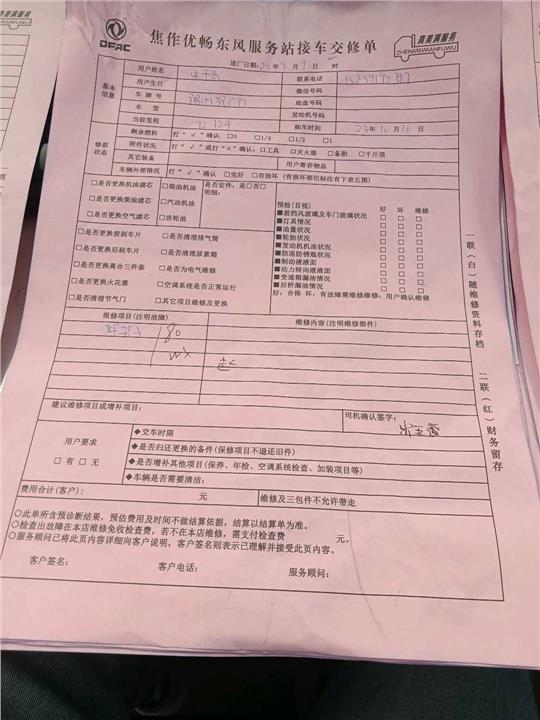 DFAC
焦作优畅东风服务站接车交修单
真美满服务
ZHENMEIMANFUWU
进厂日期:23年9月9日 时
基本信息
用户姓名 联系电话
用户生日 微信号码
车牌号 底盘号码
车型 发动机号码
当前里程 72124 购车时间 23年10月16日
修前状态
剩余燃料 打"√"确认 □0 □1/4 □1/2 □1
附件状况 打"√"或打"×"确认:□工具 □灭火器 □备胎 □千斤顶
其它装备 用户寄存物品
车辆外部情况 打"√"确认 □完好 □有损坏(有损坏部位标注有下表左图)
□是否更换机油滤芯 □柴油机油 是否定件:是□否□
明细:
□是否更换柴油滤芯 □汽油机油
□是否更换空气滤芯 □齿轮油
□是否更换前刹车片 □是否清理排气筒
□是否更换后刹车片 □是否清理尿素箱
□是否更换离合三件套 □是否为电气维修
□是否更换火花塞 □空调系统是否正常运行
□是否清理节气门 □其它项目维修及更换
预检(目视) 好 坏 维修
■前挡风玻璃及车门玻璃状况 □ □ □
■灯具情况 □ □ □
■油量状况 □ □ □
■轮胎状况 □ □ □
■发动机机油状况 □ □ □
■防冻防锈瓶状况 □ □ □
■制动液液面 □ □ □
■动力转向液液面 □ □ □
■变速箱漏油情况 □ □ □
■后桥漏油情况 □ □ □
好:合格 坏:有故障需维修维修:用户确认维修
报修项目(注明故障) 维修内容(注明维修部件)
80
WX
建议维修项目或增补项目: 司机确认签字:
用户要求
□有□无
◆交车时限
◆是否归还更换的备件(保修项目不退还旧件)
◆是否增补其他项目(保养、年检、空调系统检查、加装项目等)
◆车辆是否需要清洁:
费用合计(客户): 元 维修及三包件不允许带走
○此单所含预诊断结果,预估费用及时间不做结算依据,结算以结算单为准。
○检查出故障在本店维修免收检查费,若不在本店维修,需支付检查费 元。
○服务顾问已将此页内容详细向客户说明,客户签名则表示已理解并接受此页内容。
客户签名: 客户电话: 服务顾问:
一联(白)随维修资料存档
二联(红)财务留存